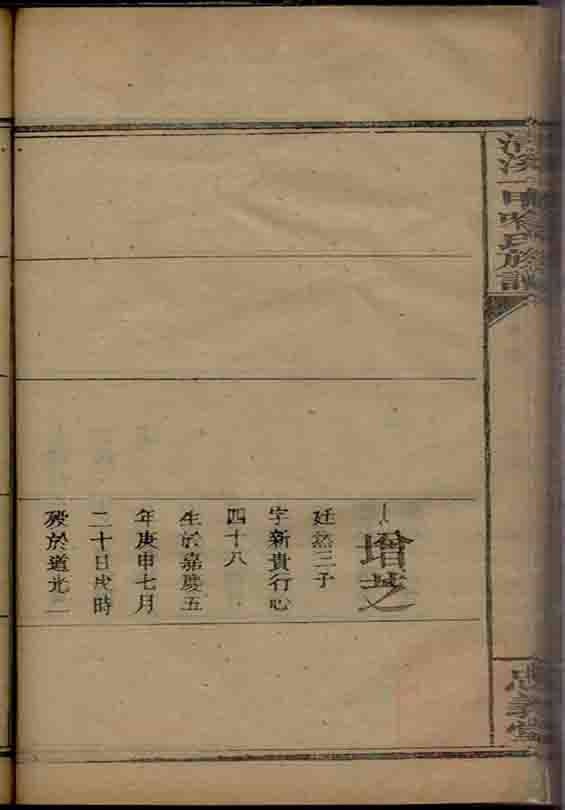 增芝
廷然三子
字新貴行心
四十八
生於嘉慶五
年庚申七月
二十日戌時
歿於道光二
氏族譜
堂